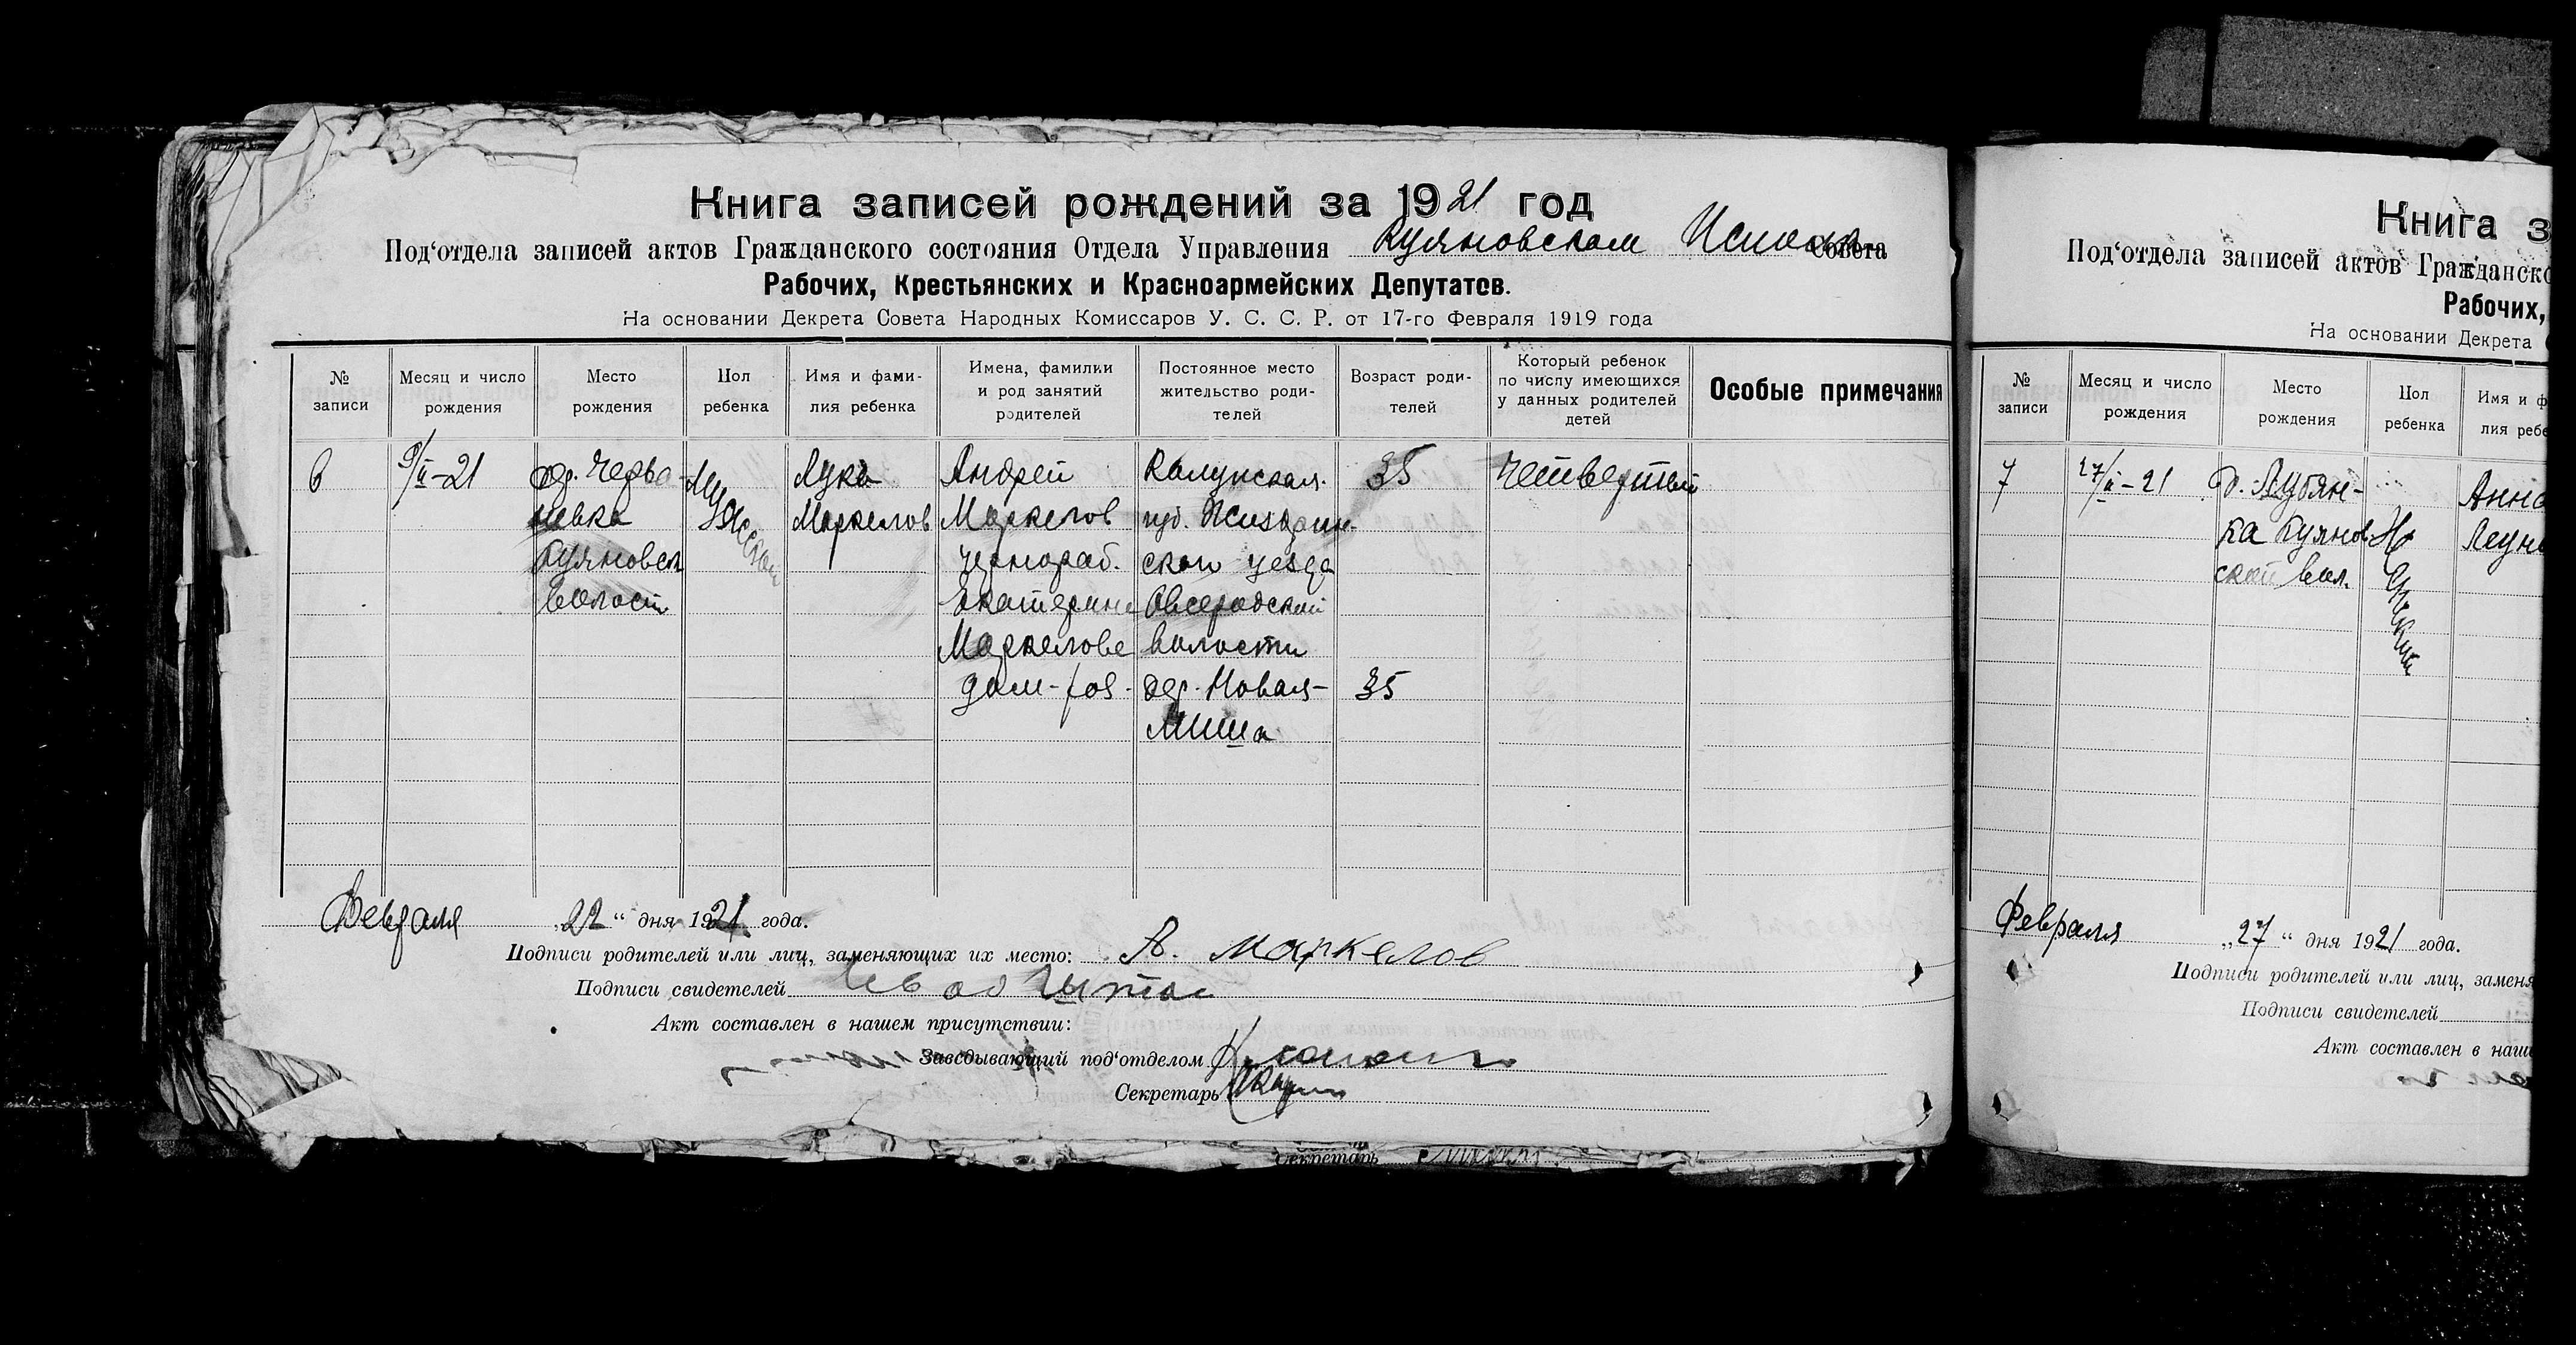 Книга записей рождений за 1921 год
Под‘отдела записей актов Гражданского состояния Отдела Управления Куяновском Совета
Рабочих, Крестьянских и Красноармейских Депутатов.
На основании Декрета Совета Народных Комиссаров У. С. С. Р. от 17-го Февраля 1919 года
№ записи
Месяц и число рождения
Место рождения
Пол ребенка
Имя и фами-
лия ребенка
Имена, фамилии
и род занятий
родителей
Постоянное место
жительство роди-
телей
Возраст роди-
телей
Который ребенок
по числу имеющихся
у данных родителей
детей
Особые примечания
6
9/II-21
невка
Куяновск
волости
Мужской
Лука
Маркелов
Андрей
Маркелов
чернораб.
Екатерина
Маркелова
дом-хоз.
Калужская
губ. Жиздрин-
ского уезда
волости
дер. Новая-
35
35
Четвертый
Февраля „22“ дня 1921 года.
Подписи родителей или лиц, заменяющих их место: А. Маркелов
Подписи свидетелей
Акт составлен в нашем присутствии:
Заведывающий под‘отделом
Секретарь
Секретарь
Книга з
Под‘отдела записей актов Гражданско
Рабочих,
На основании Декрета
№
записи
Месяц и число
рождения
Место
рождения
Пол
ребенка
Имя и ф
лия ребе
7
27/II-21
д. Лубян-
ка Куянов
ской вол.
Женский
Анна
Февраля „27“ дня 1921 года.
Подписи родителей или лиц, заменя
Подписи свидетелей
Акт составлен в наше